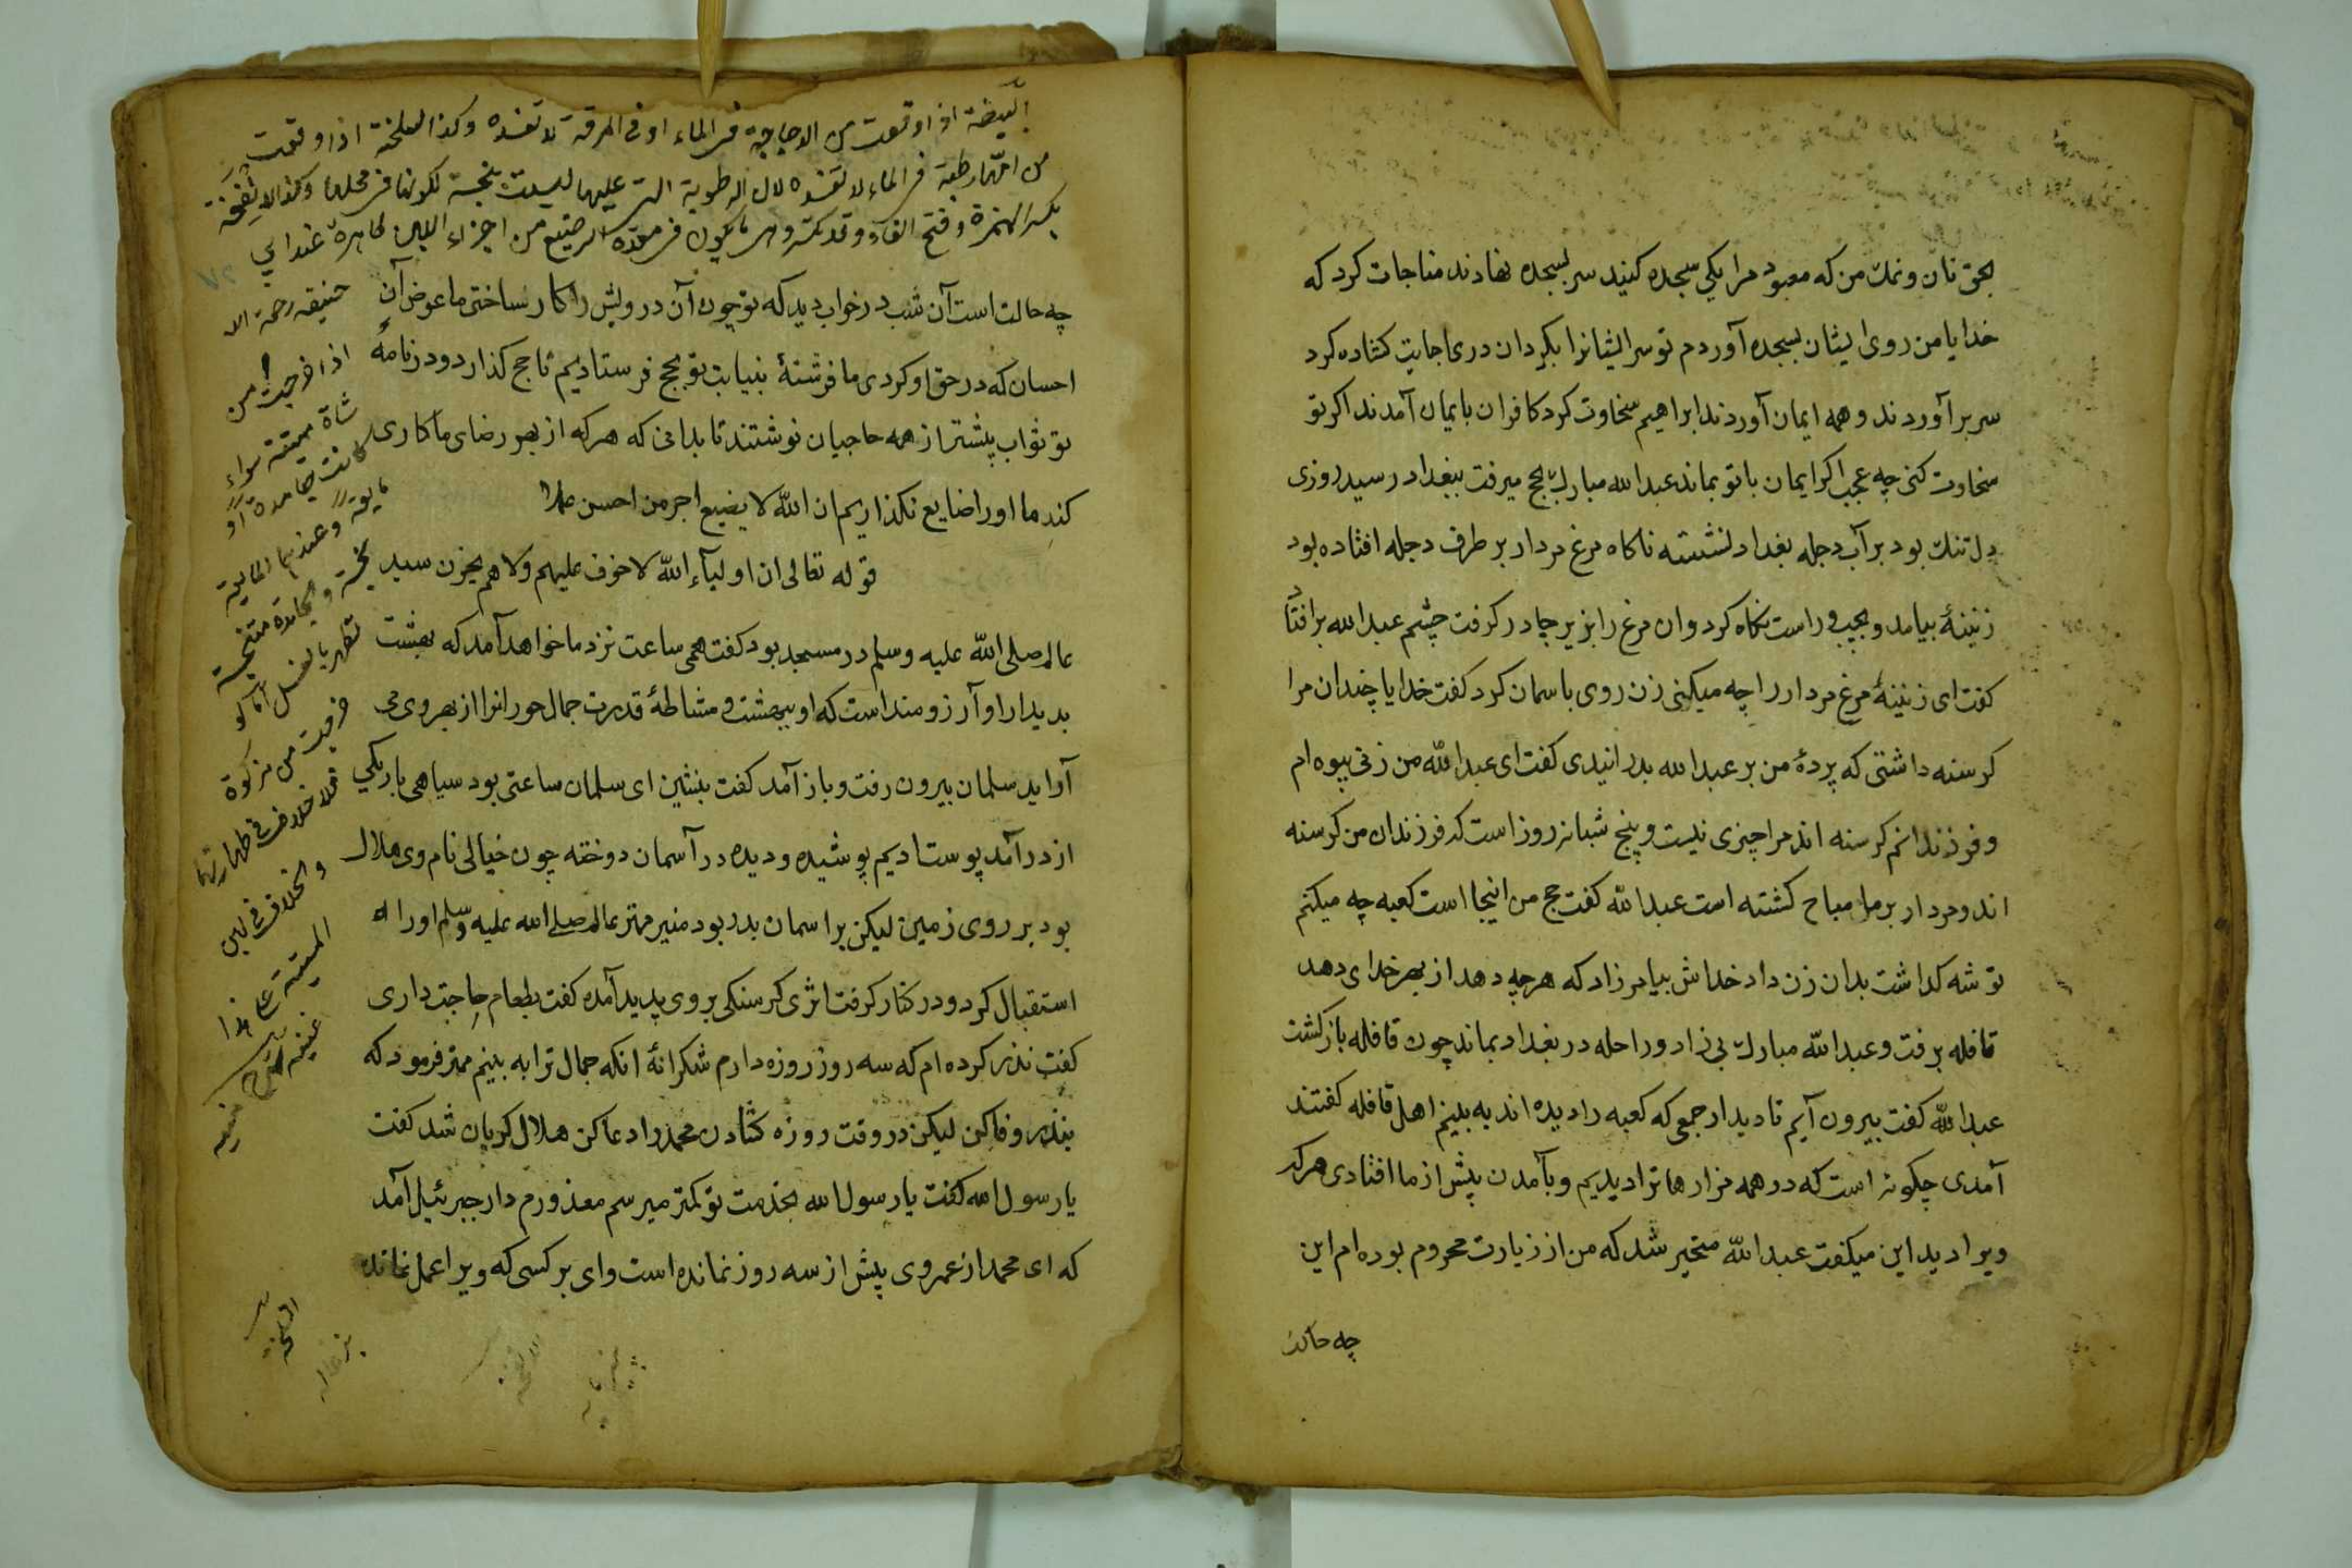 بحق نان و نمك من كه معبود مرا يكي سجده كنيد سر بسجده نهادند مناجات كرد كه
خدايا من روى ايشان بسجده آوردم تو سر ايشانرا بگردان درى اجابت كشاده كرد
سر برآوردند و همه ايمان آوردند ابراهيم سخاوت كرد كافران بايمان آمدند اكر تو
سخاوت كنى چه عجب اكر ايمان با تو بماند عبد الله مبارك بحج ميرفت ببغداد رسيد روزى
دل تنك بود بر آب دجله بغداد نشسته ناكاه مرغ مردار بر طرف دجله افتاده بود
زنينۀ بيامد و بچپ و راست نكاه كرد و ان مرغ را بزير چادر كرفت چشم عبد الله بر افتاد
كفت اى زنينۀ مرغ مردار را چه ميكنى زن روى باسمان كرد كفت خدايا چندان مرا
كرسنه داشتى كه پردۀ من بر عبد الله بدرانيدى كفت اى عبد الله من زنى بيوه ام
و فرزندانم كرسنه اند مرا چيزى نيست و پنج شبانروز است كه فرزندان من كرسنه
اند و مردار بر ما مباح كشته است عبد الله كفت حج من اينجا است كعبه چه ميكنم
توشه كداشت بدان زن داد خداش بيامرزاد كه هرچه دهد از بهر خداى دهد
قافله برفت و عبد الله مبارك بى زاد و راحله در بغداد بماند چون قافله بازكشت
عبد الله كفت بيرون آيم تا ديدار جمعى كه كعبه را ديده اند به بينم اهل قافله كفتند
آمدى چكونه است كه در همه مزارها ترا ديديم و بآمدن پيش از ما افتادى هر كه
ويرا ديد اين ميكفت عبد الله متحير شد كه من از زيارت محروم بوده ام اين
چه حالت
البيضة اذا وقعت من الدجاجة فى الماء او فى المرقة لا تفسده وكذا السخلة اذا وقعت
من امها رطبة فى الماء لا تفسده لان الرطوبة التى عليها ليست بنجسة لكونها فى محلها وكذا الانفحة
بكسر الهمزة وفتح الفاء وقد تكسر وهى ما يكون فى معدة الرضيع من اجزاء اللبن طاهرة عند ابي
حنيفه رحمه الا
اذا خرجت من
شاة ميتة سواء
كانت جامدة او
مايعة وعندهما المايعة
نجسة والجامدة متنجسة
تطهر بالغسل اما لو
خرجت من مزكوة
فلا خلاف فى طهارتها
والخلاف فى لبن
الميتة على هذا
غنيه شرح منيه
چه حالت است آن شب در خواب ديد كه تو چون آن درويش را كار ساختى ما عوض آن
احسان كه در حق او كردى ما فرشتۀ بنيابت تو بحج فرستاديم تا حج كذارد و در نامۀ
تو ثواب پيشتر از همه حاجيان نوشتند تا بدانى كه هركه از بهر رضاى ما كارى
كند ما او را ضايع نكذاريم ان الله لا يضيع اجر من احسن عملا
قوله تعالى ان اوليآء الله لا خوف عليهم ولا هم يحزن سيد
عالم صلى الله عليه وسلم در مسجد بود كفت همى ساعت نزد ما خواهد آمد كه بهشت
بديدار او آرزومند است كه او ببهشت و مشاطۀ قدرت جمال حورانرا از بهر وى مى
آرايد سلمان بيرون رفت و باز آمد كفت بنشين اى سلمان ساعتى بود سياهى باريكي
از در آمد پوستاديم پوشيده و ديده در آسمان دوخته چون خيالى نام وى هلال
بود بر روى زمين ليكن بر اسمان بدر بود منير مهتر عالم صلى الله عليه وسلم او را
استقبال كرد و در كنار كرفت اثرى كرسنكى بر وى پديد آمده كفت بطعام حاجت دارى
كفت نذر كرده ام كه سه روز روزه دارم شكرانۀ انكه جمال ترا به بينم مهتر فرمود كه
بنذر وفا كن ليكن در وقت روزه كشادن محمد را دعا كن هلال كريان شد كفت
يا رسول الله كفت يا رسول الله بخدمت تو كمتر ميرسم معذورم دار جبرئيل آمد
كه اى محمد از عمر وى پيش از سه روز نمانده است واى بر كسى كه ويرا عمل نمانده
السخلة
بزغاله
الانفحة